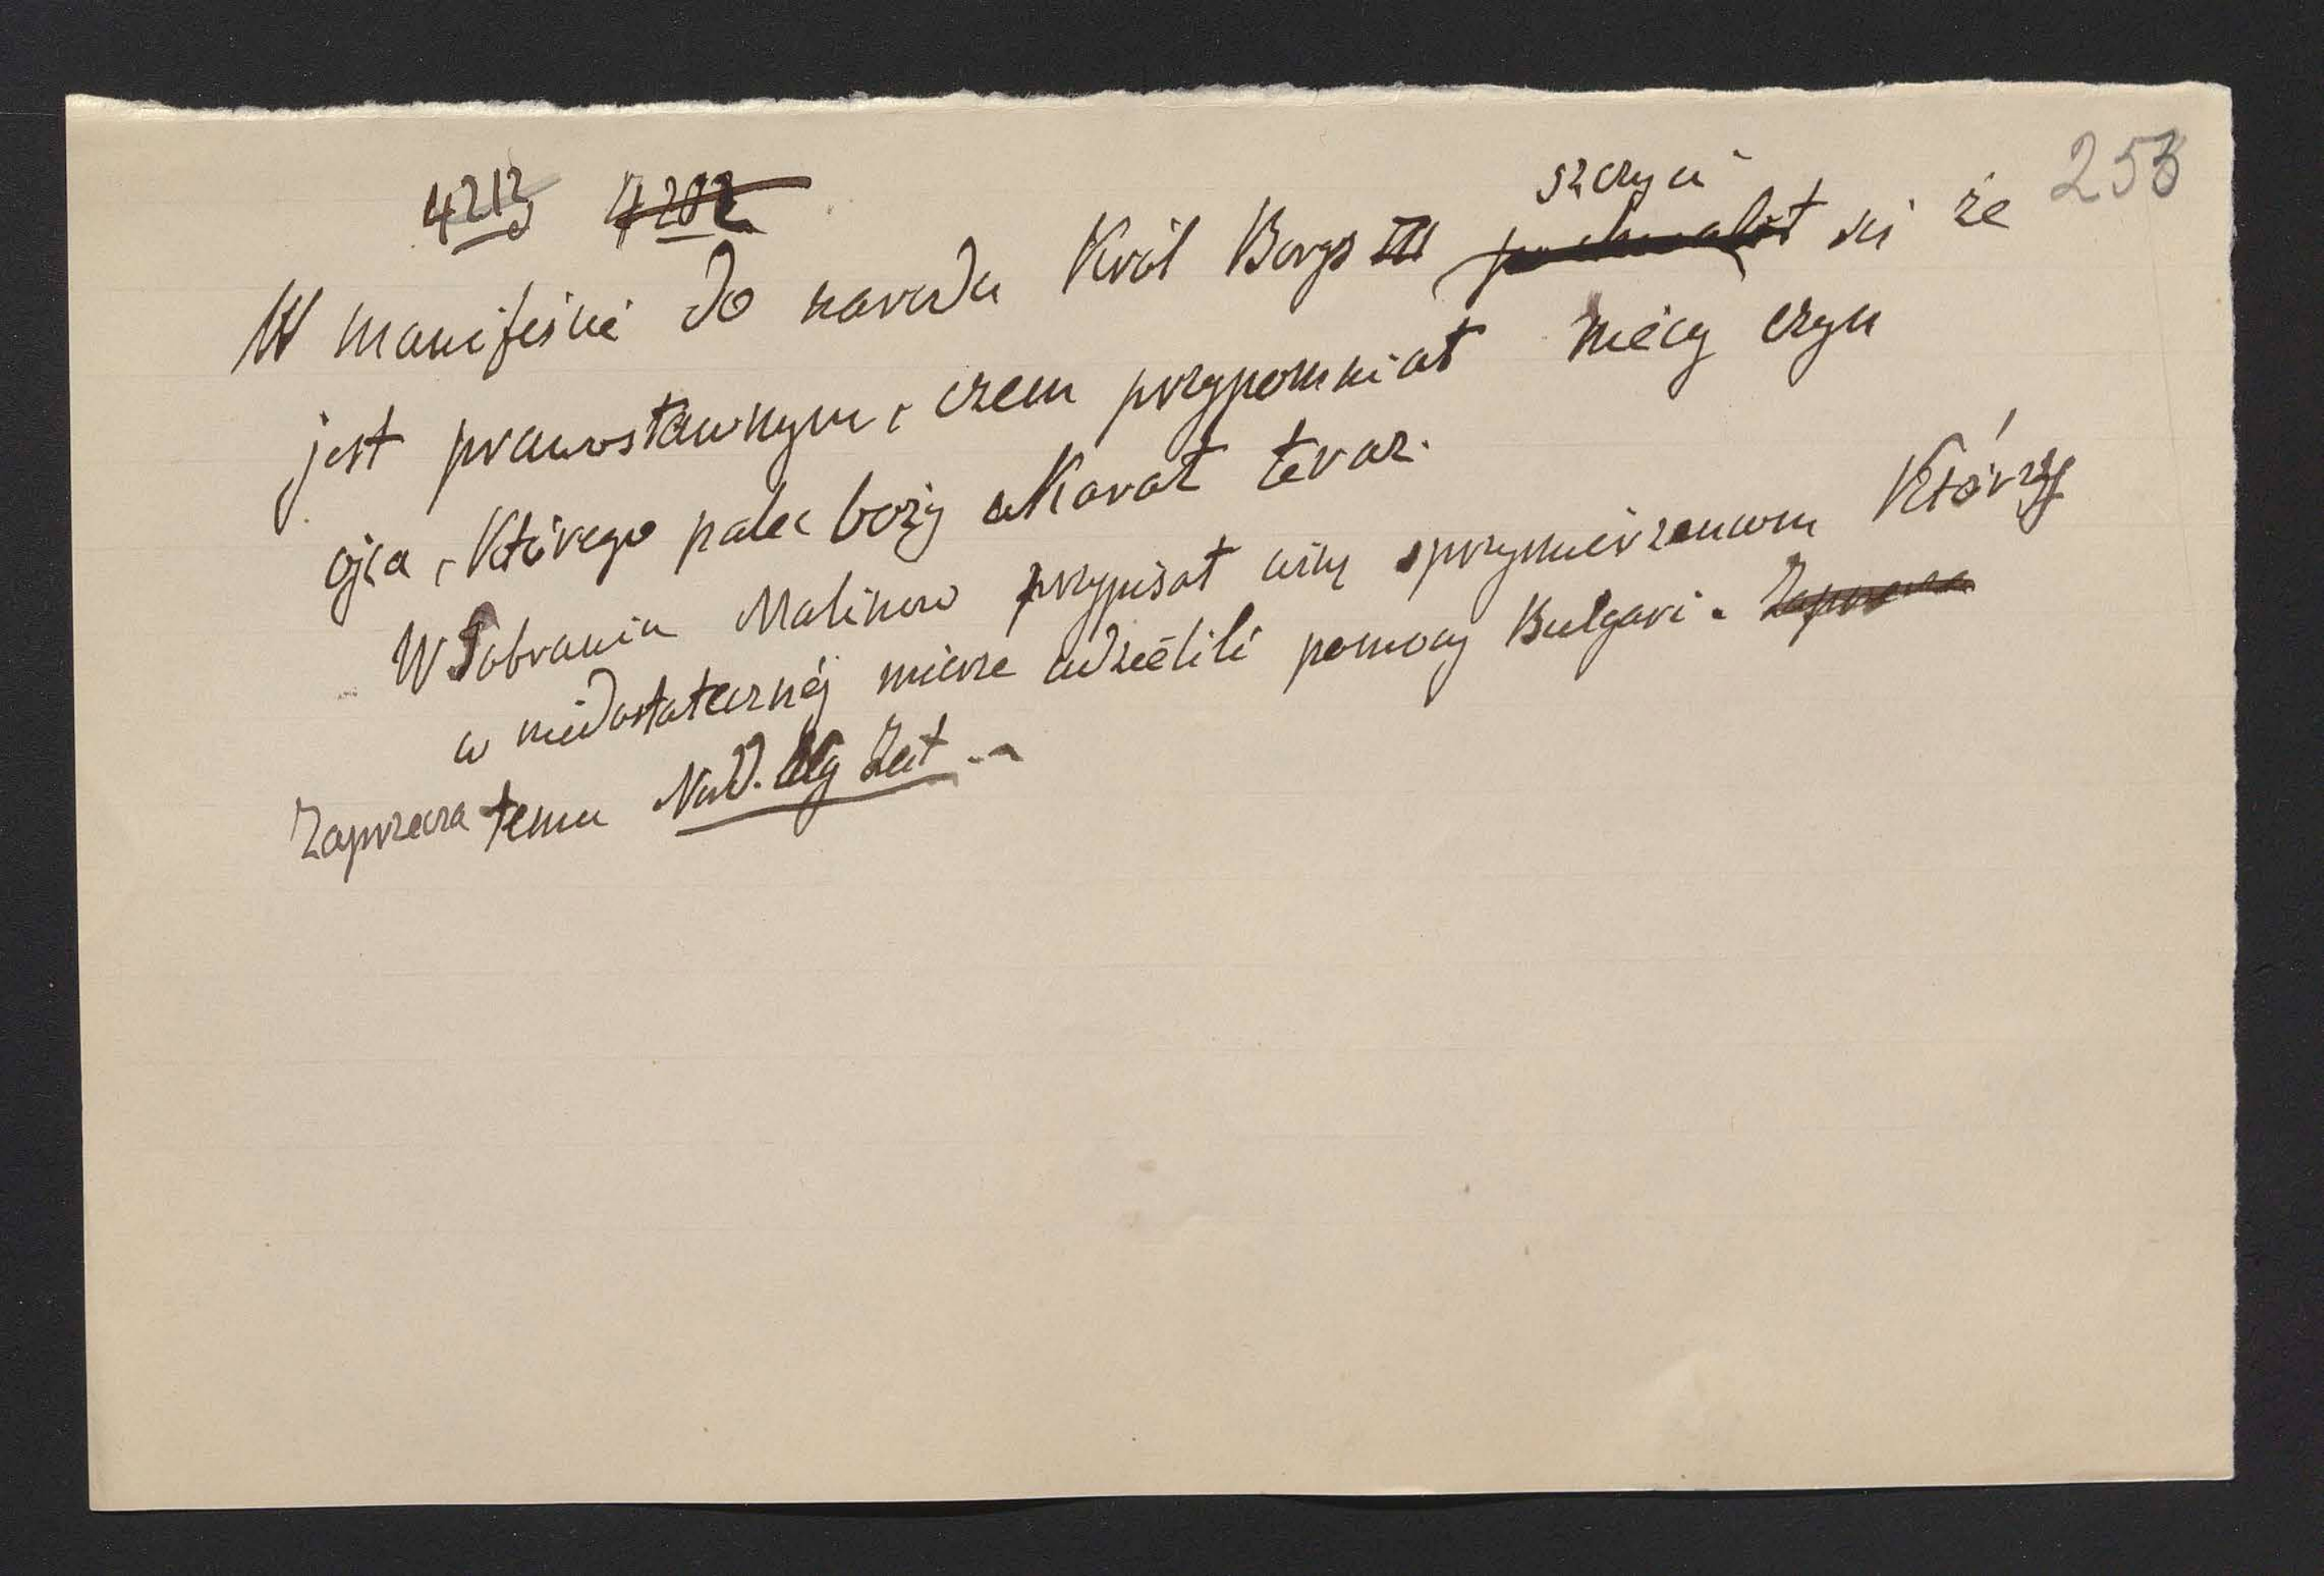 253
4213 4202
szczyci
W manifeście do narodu Król Borys III pochwalił się że
jest prawosławnym, czem przypomniał niecny czyn
ojca, którego palec boży ukarał teraz.
W Sobraniu Malinow przypisał winę sprzymierzeńcom którzy
w niedostatecznej mierze udzielili pomocy Bulgari. Zaprzecza
Zaprzecza temu Nord. Allg Zeit.-